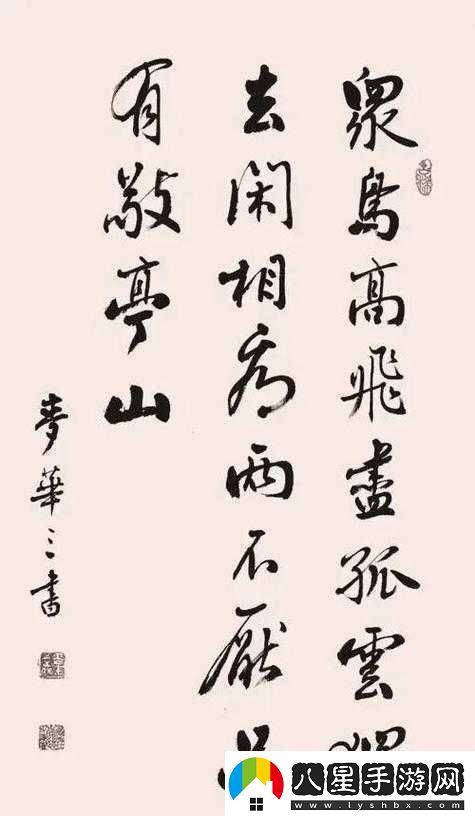 眾鳥高飛盡孤雲
去閑相看兩不厭
有敬亭山
麥華三書
八星手游网
www.lyshbx.com